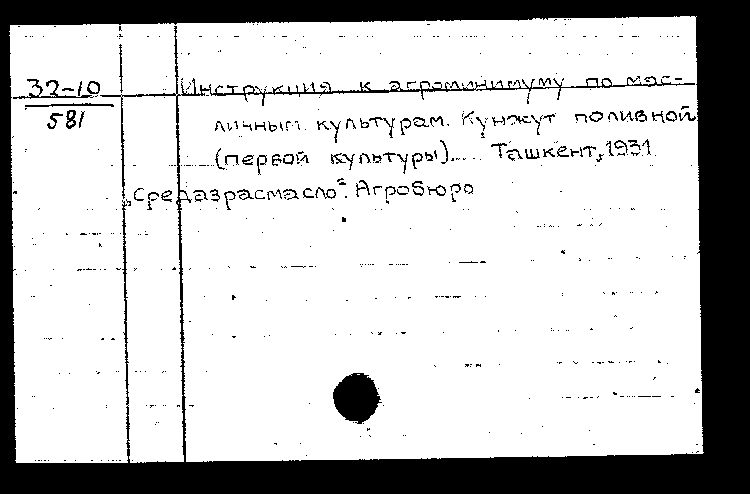 32-10
581
Инструкция к агроминимуму по мас-
личным культурам. Кунжут поливной
(первой культуры)... Ташкент, 1931
„Средазрасмасло“. Агробюро